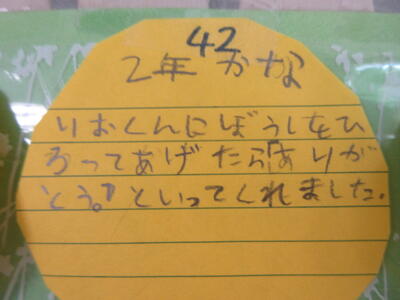 42
2年 かな
りおくんにぼうしをひ
ろってあげたら「ありが
とう。」といってくれました。